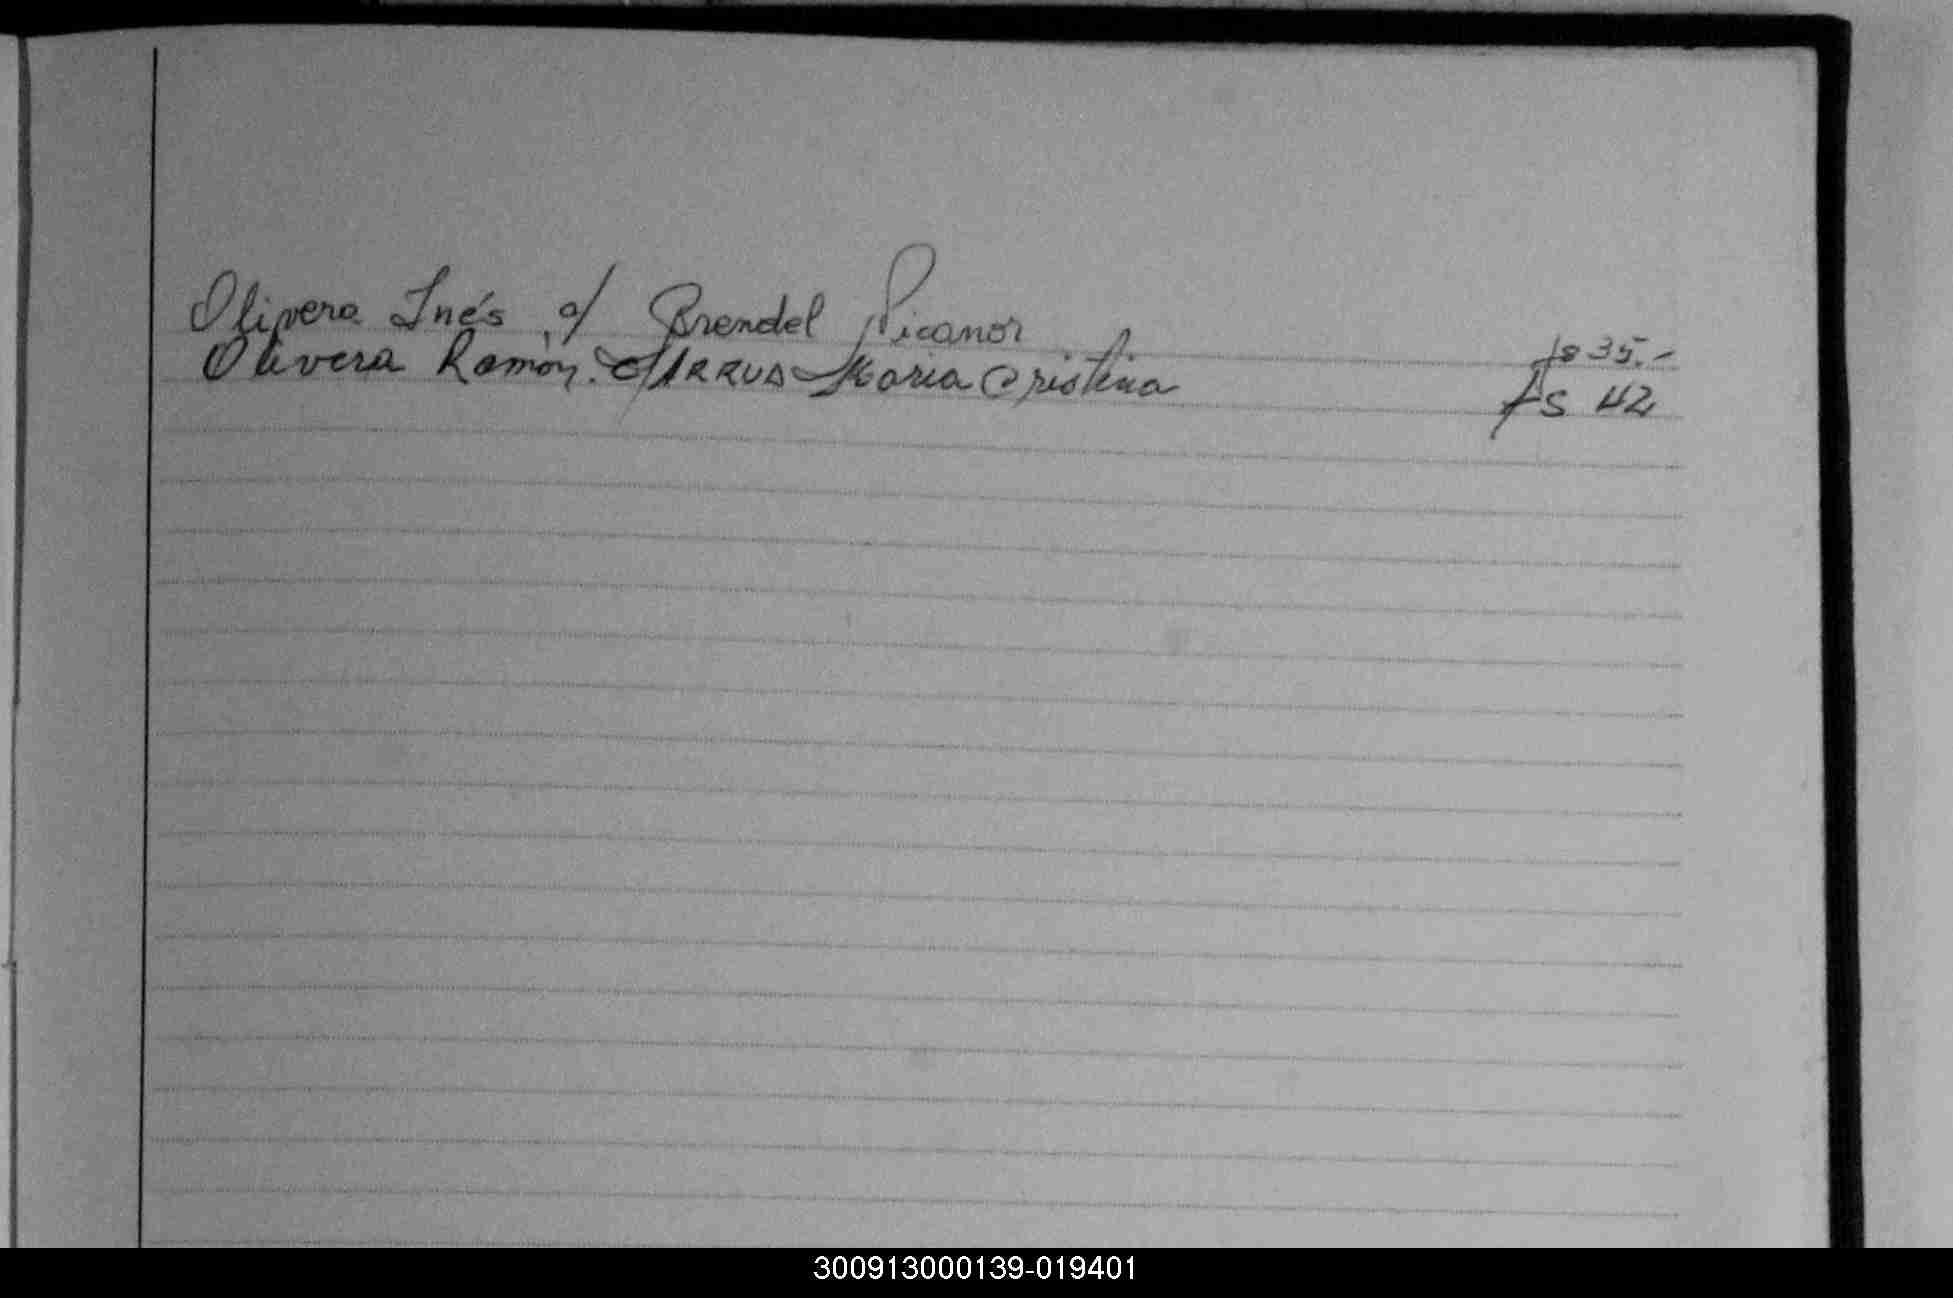 Olivera Inés c/ Brendel Nicanor fs 35.-
Olivera Ramón. c/ ARRUA María Cristina fs 42
300913000139-019401